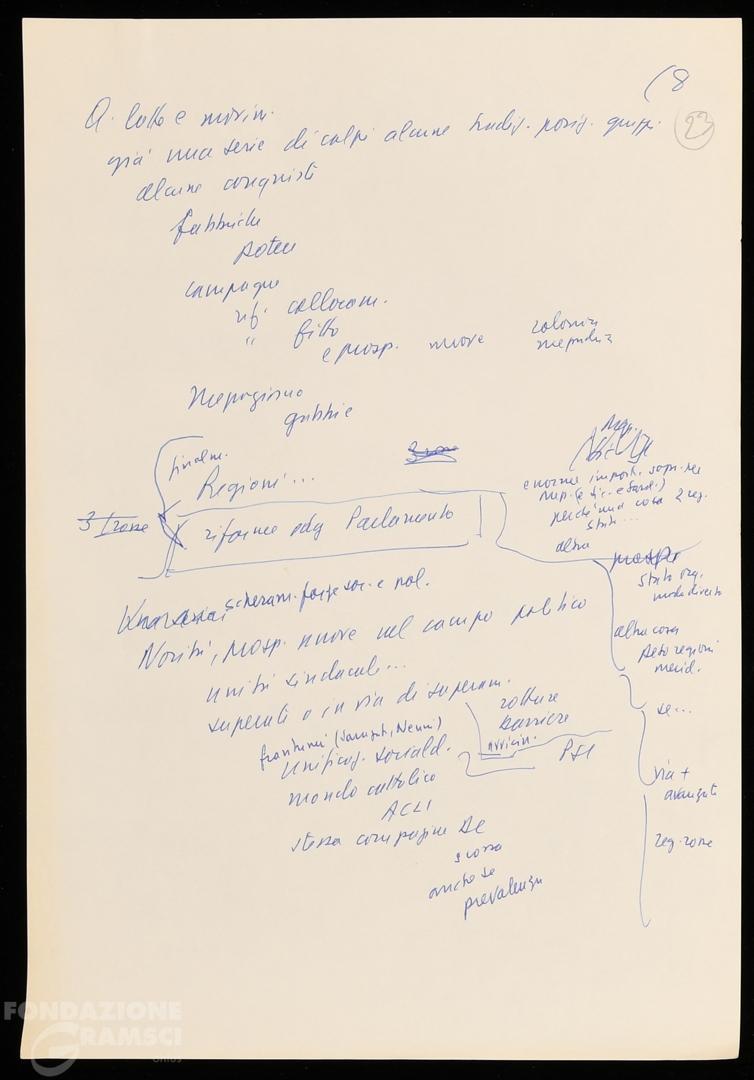 (8
23
A. lotte e movim.
già una serie di colpi alcune tradiz. posiz. gruppi
alcune conquiste
fabbriche
potere
campagne
rif. collocam.
" fitto
e prosp. nuove colonia mezzadria
Mezzogiorno
gabbie
finalm.
Regioni...
3 Irosse
riforme Parlamento
Mezz.
enorme import. sopr. per
Mezz. (e Sic. e Sard.)
perché una cosa 2 reg.
stat. ...
altra
prosp.
Stat. org.
modo diverso
altra cosa
peso regioni
merid.
se...
via +
avanzata
reg. rosse
scheram. forze soc. e pol.
Novità, prosp. nuove nel campo politico
unità sindacale...
superati o in via di superam.
rotture
barriere
avvicin.
frantumi (Saragat, Nenni)
unificaz. sociald.
PSI
mondo cattolico
ACLI
stessa compagine DC
scossa
anche se
prevalenza
FONDAZIONE
GRAMSCI
ONLUS